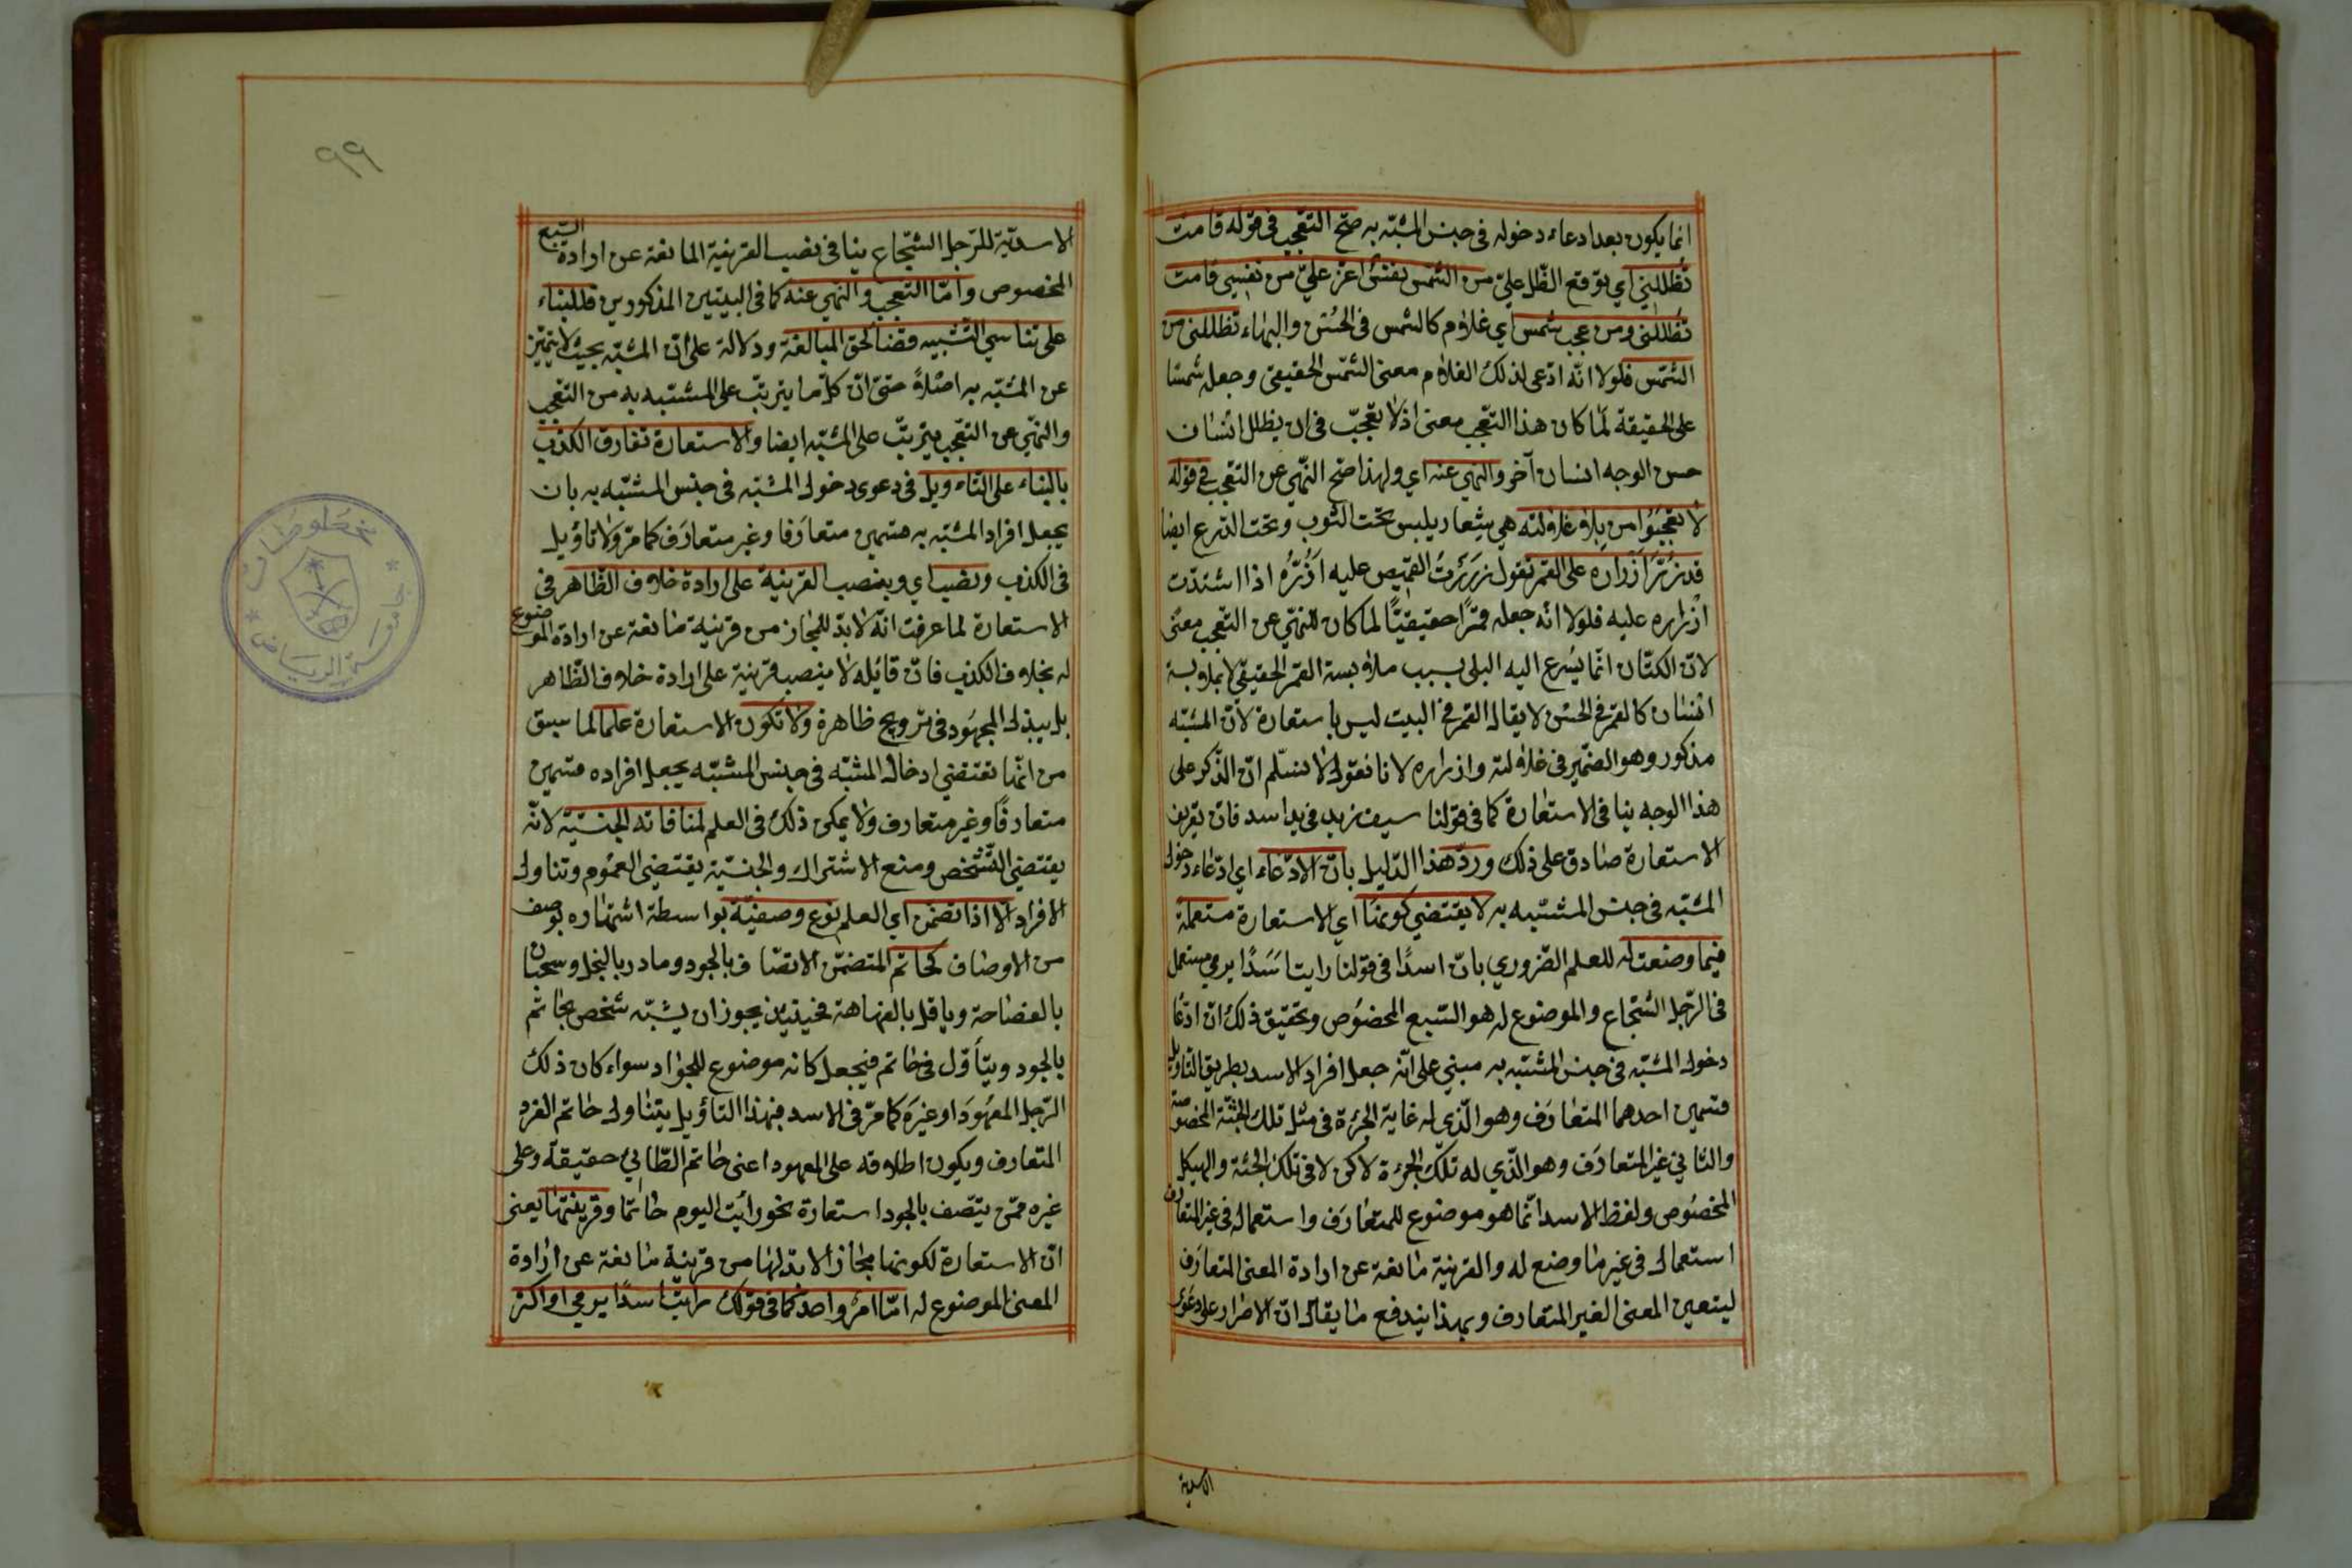 انما يكون بعد ادعاء دخوله فى جنس المشبّه به صحّ التعّجب فى قوله قامت
تُظَلِلُني اي توقع الظّل عليّ من الشمس نفسٌ اعزّ عليّ من نفسي قامت
تُظلِلُنى ومن عجب شمس اي غلام كالشمس فى الحُسْن والبهاء تظللنى من
الشمس فلولا انّه ادّعى لذلك الغلام معنى الشّمس الحقيقى وجعله شمسًا
على الحقيقة لَما كان هذا التعّجب معنى اذ لا تعجّب فى ان يظلل انسان
حسن الوجه انسان آخر والنهى عنه اي ولهذا صحّ النّهي عن التعجب فى قوله
لا تعجبُوا من بِلى غلالته هي شعار يلبس تحت الثوب وتحت الدّرع ايضا
قد زُرَّ اَزْرَارُه على القمر تقول زرَرْتُ القميص عليه اَزُرُّه اذا اشتدّت
اَزْراره عليه فلولا انّه جعله قمرًا حقيقيًّا لما كان للنهّي عن التعّجب معنًى
لانّ الكتّان انّما يُسْرع اليه البلى بسبب ملابسة القمر الحقيقى لا بملابسة
انسان كالقمر فى الحسن لا يقال القمر فى البيت ليس باستعارة لانّ المشبّه
مذكور وهو الضّمير فى غلالته وازراره لانا نقول لا نسلّم انّ الذّكر على
هذا الوجه ينافى الاستعارة كما فى قولنا سيف زيد فى يد اسد فانّ تعريف
الاستعارة صادق على ذلك وردّ هذا الدّليل بانّ الادّعاء اي ادّعاء دخول
المشبّه فى جنس المشبّه به لا يقتضي كونها اي الاستعارة مستعملة
فيما وضعت له للعلم الضّروري بانّ اسدًا فى قولنا رايت اسَدًا يرمي مستعمل
فى الرّجل الشّجاع والموضوع له هو السّبع المخصُوص وتحقيق ذلك انّ ادّعا
دخول المشبّه فى جنس المشبّه به مبني على انّه جعل افراد الاسد بطريق التّاويل
قسمين احدهما المتعارَف وهو الّذي له غاية الجرْءة فى مثل تلك الجثّة المخصوصة
والثاني غير المتعارَف وهو الّذي له تلك الجرءة لاكن لا فى تلك الجثة والهيكل
المخصُوص ولفظ الاسد انّما هو موضوع للمتعارَف واستعماله فى غير المتعارف
استعمال فى غير ما وضع له والقرينة مانعة عن ارادة المعنى المتعارَف
ليتعين المعنى الغير المتعارف وبهذا يندفع ما يقال انّ الاصرار على دعوى
الاسدية
٩٩
الاسديّة للرّجل الشّجاع ينافى نصب القرينة المانعة عن ارادة السّبع
المخصوص وامّا التعجب والنّهي عنه كما فى البيتين المذكورين فللبناء
على تناسي التّشبيه قضاءً لحق المبالغة ودلالة على انّ المشبّه بحيث لا يتميّز
عن المشبّه به اصلاً حتى انّ كلّ ما يترتّب على المشبّه به من التعّجب
والنهّي عن التعّجب يترتّب على المشبّه ايضا والاستعارة تفارق الكذب
بالبناء على التّاءويل فى دعوى دخول المشبّه فى جنس المشبّه به بان
يجعل افراد المشبّه به قسمين متعارَفا وغير متعارَف كما مرّ ولا تاؤيل
فى الكذب ونصب اي وبنصب القرينة على ارادة خلاف الظّاهر فى
الاستعارة لما عرفت انّه لا بدّ للمجاز من قرينة مانعة عن ارادة الموضوع
له بخلاف الكذب فانّ قائله لا ينصب قرينة على ارادة خلاف الظّاهر
بل يبذل المجهُود فى ترويج ظاهره ولا تكون الاستعارة علمًا لما سبق
من انّها تقتضي ادخال المشبّه فى جنس المشبّه به بجعل افراده قسمين
متعارفًا وغير متعارف ولا يمكن ذلك فى العلم لمنافاته الجنسيّة لانّه
يقتضي التّشخص ومنع الاشتراك والجنسيّة يقتضى العمُوم وتناول
الافراد الّا اذا تضمّن اي العلم نوع وصفيّة بواسطة اشتهاره بوصف
من الاوصاف كحاتم المتضمّن الاتصّاف بالجود ومادر بالبخل وسحبان
بالفصاحة وباقل بالفهاهة فحينئذ يجوز ان يشبّه شخص بحاتم
بالجود ويتأوّل فى حاتم فيجعل كانه موضوع للجوّاد سواء كان ذلك
الرّجل المعهُودَ او غيرَه كما مرّ فى الاسد فبهذا التاؤيل يتناول حاتم الفرد
المتعارف ويكون اطلاقه على المعهود اعنى حاتم الطّائي حقيقةً وعلى
غيره ممّن يتّصف بالجود استعارة نحو رائيت اليوم حاتمًا وقرينتها يعنى
انّ الاستعارة لكونها مجازًا لا بدّ لها من قرينة مانعة عن ارادة
المعنى الموضوع له امّا امرٌ واحد كما فى قولك رايت اسدًا يرمي او اكثر
مخطوطات
جامعة الرياض